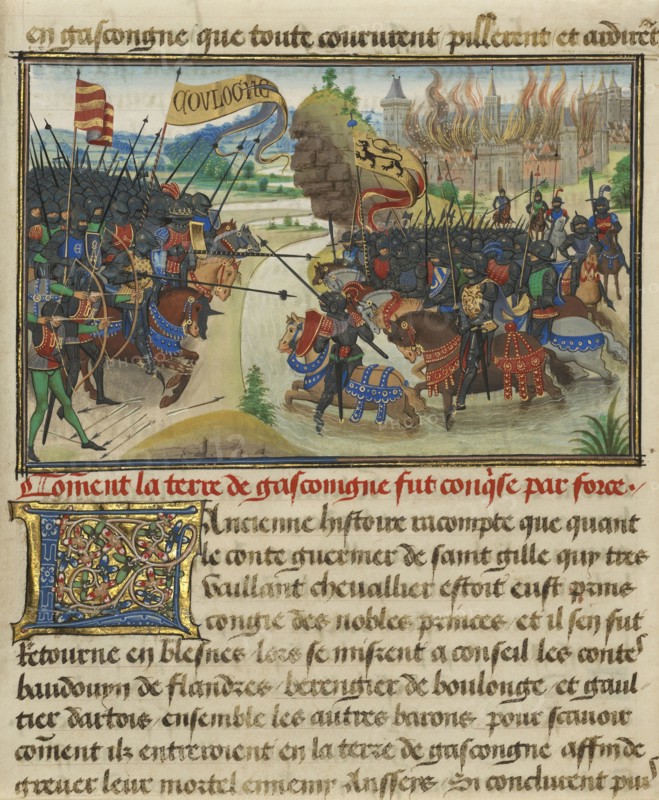 en gascongne que toute coururent pillerent et ardirẽt
COVLOGNE
Cõment la terre de gascoingne fut conq̃se par force.
L Ancienne hystoire racompte que quant
le conte guermer de saint gille quy tres
vaillant chevallier estoit eust prins
congie des nobles princes et il sen fut
Retourne en blesnes lors se misrent a conseil les conte
baudouyn de flandres berengier de boulonge et gaul
tier dartois ensemble les autres barons pour scauoir
cõment ilz entreroient en la terre de gascongne affin de
greuer leur mortel ennemy Anssers Si conclurent pus